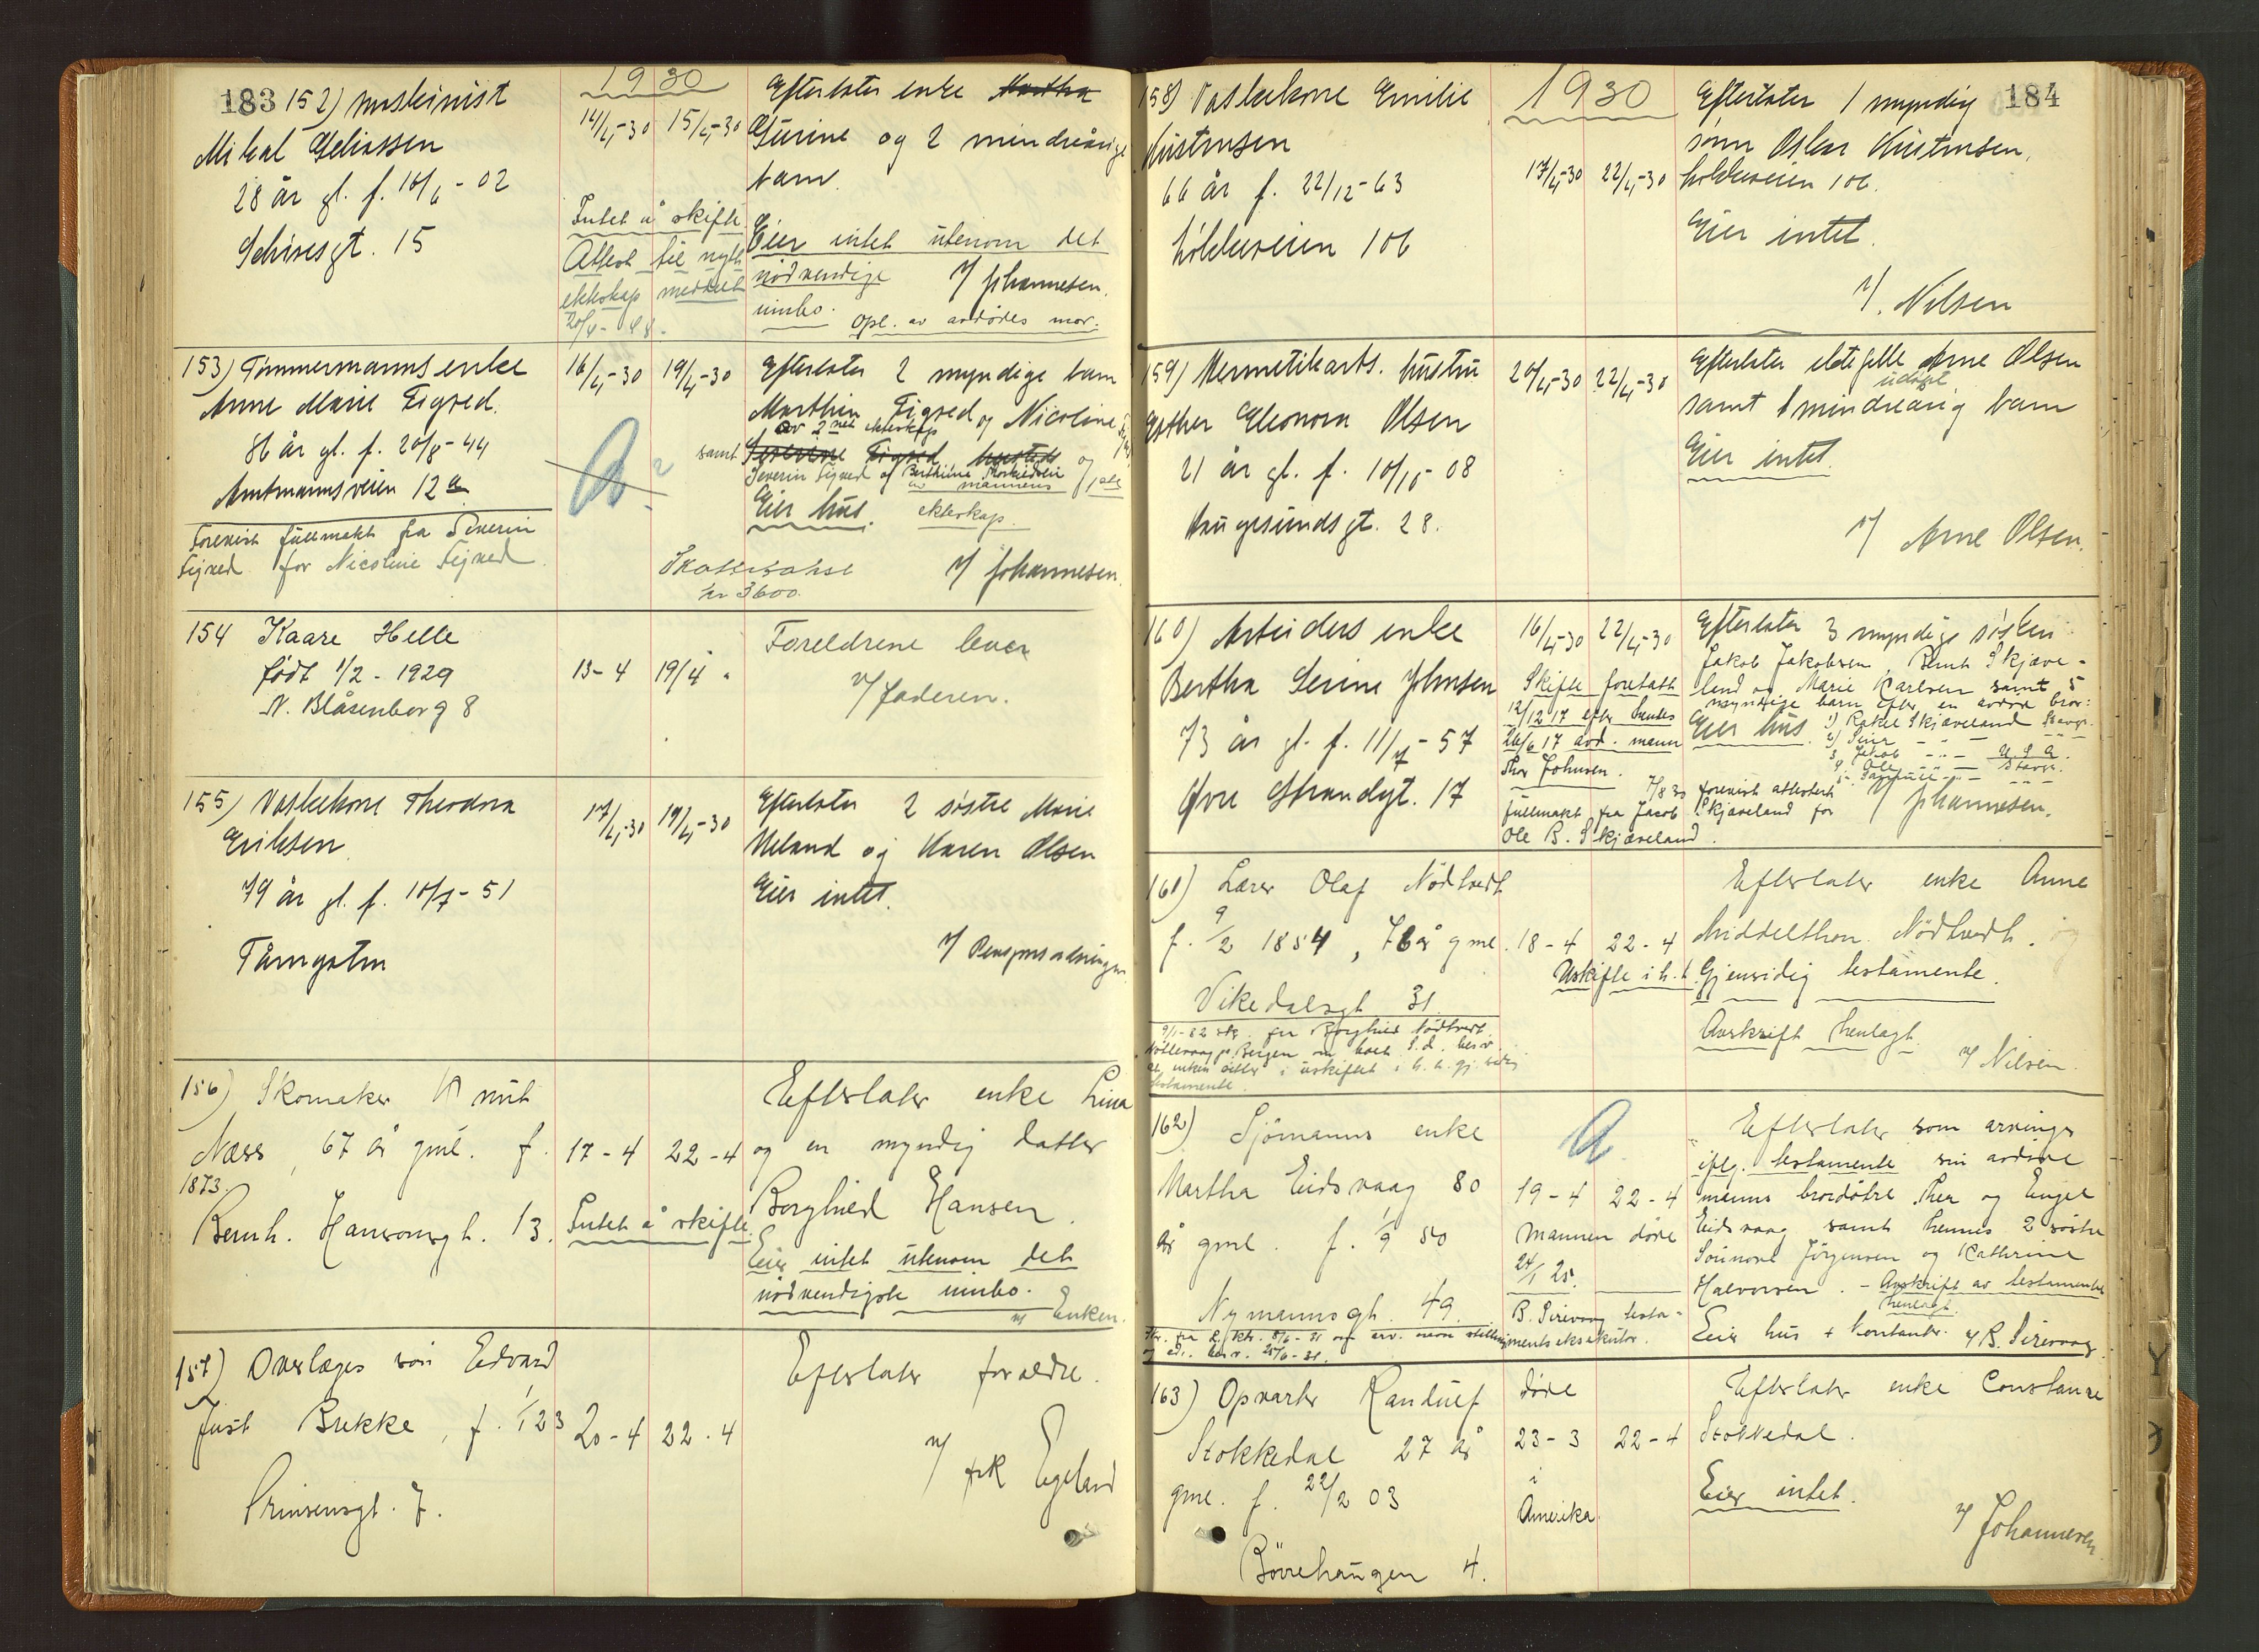 183
1930
152) maskinist
Mikal Eeliassen
28 år gl. f. 16/6 - 02
Schivesgt. 15
14/4-30 15/4-30
Intet å skifte.
Attest til nytt
ekteskap meddelt
20/4 - 48.
Efterlater enke Martha
Gurine og 2 mindreårige
barn.
Eier intet utenom det
nødvendige
innbo.
v/ Johannesen.
opl. av avdødes mor.
153) Tømmermanns enke
Anne Marie Tigred.
86 år gl. f. 20/8 - 44
Amtmannsveien 12a
Forevist fullmakt fra Severin
for Nicoline
16/4-30 19/4-30
Efterlater 2 myndige barn
Marthin Tigred og Nicoline
av 2net ekteskap
samt
Severin Tigred og Berthine
av mannens
1ste
ekteskap.
Eier hus.
Skattetakst
kr 3600.
v/ Johannesen.
154 Kaare Helle
født 1/2 - 1929
N. Blåsenborg 8
13-4 19/4
Foreldrene lever
v/ Jaderen.
155) Vaskekone Theodora
Eriksen
79 år gl. f. 10/7 - 51
Tårngaten
17/4-30 19/4-30
Efterlater 2 søstre Marie
Meland og Karen Olsen
Eier intet.
v/ Pensjonsordningen
156) Skomaker Knut
Næss, 67 år gml. f.
1873.
Bernh. Hansonsgt. 13.
17-4 22-4
Intet å skifte.
Efterlater enke Lina
og en myndig datter
Borghild Hansen.
Eier intet utenom det
nødvendigste innbo.
v/ Enken.
157) Overlæges søn Edvard
Just Brekke, f. 1/1 23
Prinsensgt. 7.
20-4 22-4
Efterlater forældre.
v/ frk Egeland
184
1930
158) Vaskekone Emilie
Kristensen
66 år f. 22/12-63
Løkkeveien 106
17/4-30 22/4-30
Efterlater 1 myndig
sønn Oskar Kristensen,
Løkkeveien 106.
Eier intet.
v/. Nilsen
159) Hermetikarb. hustru
Esther Eleonora Olsen
21 år gl. f. 10/10-08
Haugesundsgt. 28.
20/4-30 22/4-30
Efterlater ektefelle Arne Olsen
udøpt
samt 1 mindreårig barn
Eier intet.
v/ Arne Olsen.
160) Arbeiders enke
Bertha Serine Johnsen
73 år gl. f. 11/4 - 57
Øvre Strandgt. 17
16/4-30 22/4-30
Skifte foretatt
12/12 17 efter hendes
26/6 17 avd. mann
Thor Johnsen.
7/8 30 forevist attestert
fullmakt fra Jacob Skjæveland for
Ole B. Skjæveland.
Efterlater 3 myndige søsken
Jakob Jakobsen, Bernt Skjæve-
land og Marie Karlsen samt 5
myndige barn efter en avdød bror:
Eier hus.
1) Rakel Skjæveland Stavgr.
2) Peder
3 Jakob U.S.A.
4. Ole Stavgr.
v/ Johannesen.
161) Lærer Olaf Nödtvedt
f. 9/2 1854, 76 år gml.
Vikedalsgt 31.
9/1-52 fra Borghild Nödtvedt
Bergen om
enken sitter i uskiftet i h.h. gj.sidig
testamente.
18-4 22-4
Uskifte i h. t.
Efterlater enke Anne
Middelthon Nödtvedt.
Gjensidig testamente.
Avskrift henlagt.
v/ Nilsen.
162) Sjömanns enke
Martha Eidsvaag 80
år gml. f. 1/9 50
Nymannsgt. 49.
19-4 22-4
Mannen döde
24/1 25.
B. Sirevaag testa-
mentseksekutor.
Efterlater som arvinger
iflg. testamente sin avdöde
manns brordötre Thea og Engel
Eidsvaag samt hennes 2 söstre
Sunnove Jörgensen og Kathrine
Halvorsen. - Avskrift av testamente
henlagt.
Eier hus + kontanter. v/ B. Sirevaag.
163) Opvarter Randulf
Stokkedal 27 år
gml. f. 22/2 03
Börrehaugen 4.
döde
23-3 22-4
i
Amerika.
Efterlater enke Constanze
Stokkedal.
Eier intet.
v/ Johannesen.